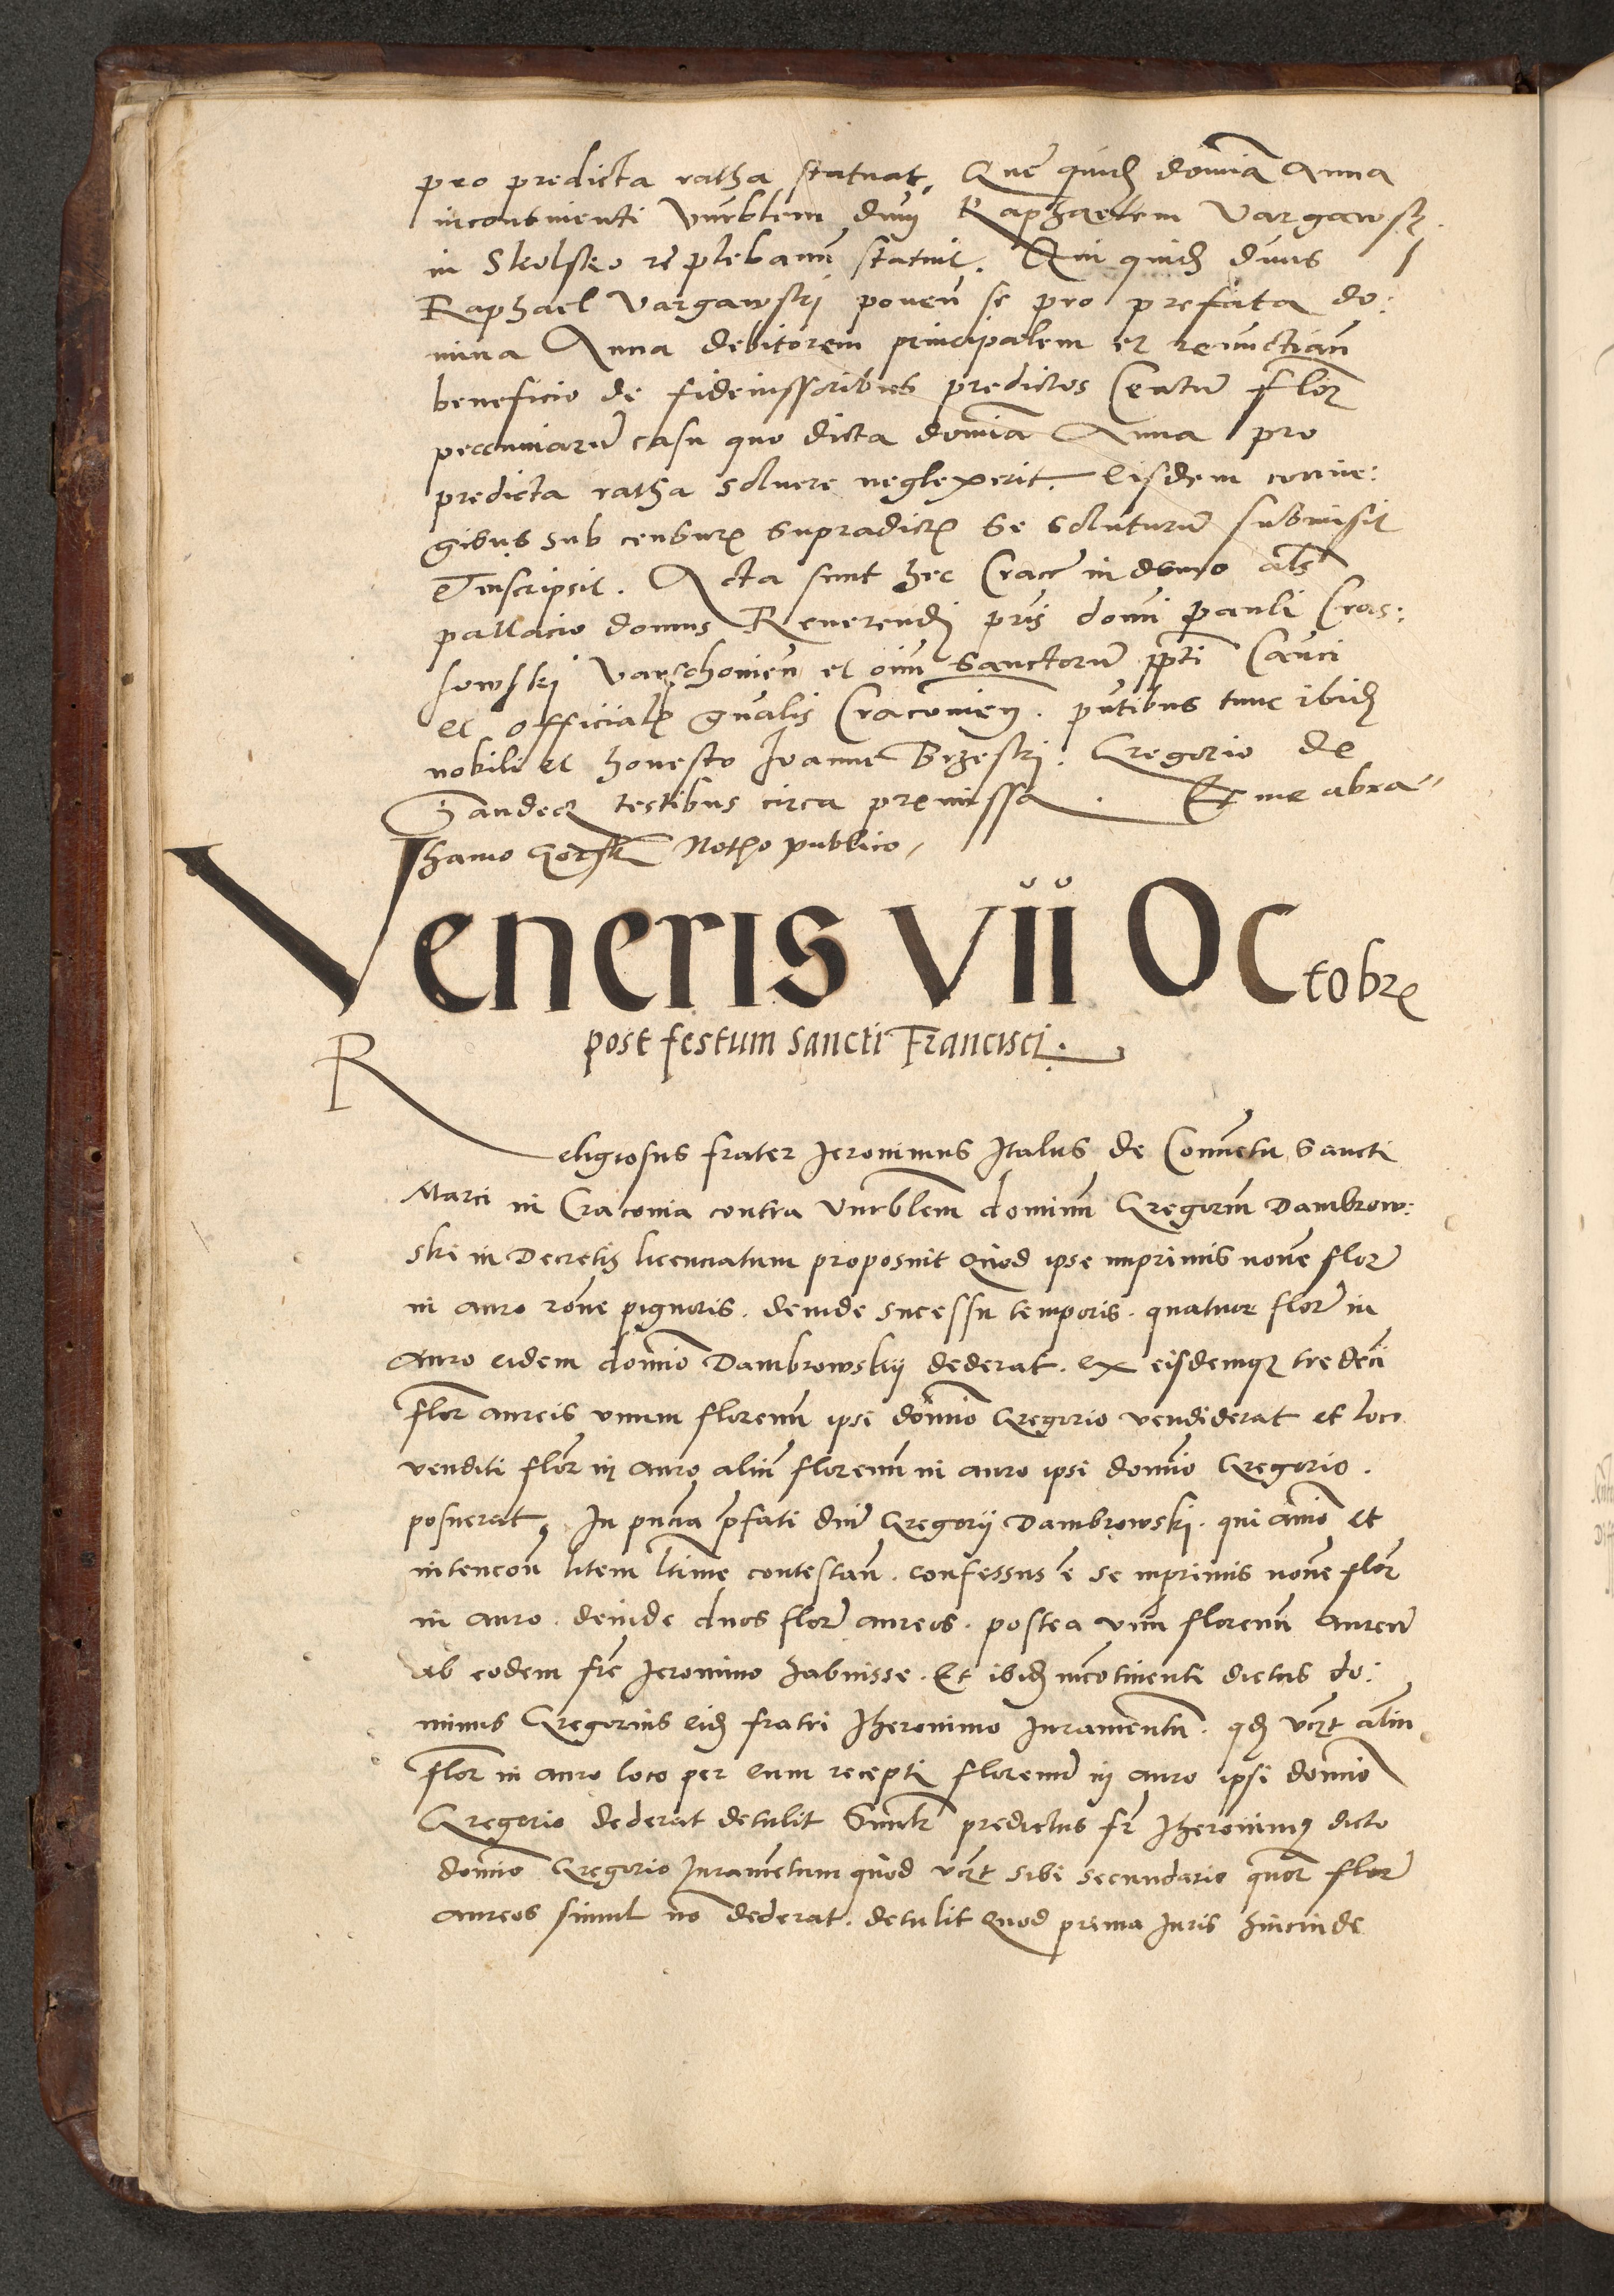 pro predicta ratha statuat, Que quidē domīa Anna
incontinenti vnrblem dnm̄ Raphaelem Vargawsķi
in Skolsko plebanū statuit. Qui quidē dnus
Raphael Vargawski ponen̄ se pro prefata do:
mina Anna debitorem principalem et renūctiān
beneficio de fideiussoribus predictos Centū flor̄
peccuniarū casu quo dicta domīa Anna pro
predicta ratha soluere neglexerit. Eisdem coniu:
gibus sub censurę supradictę se soluturū submisit
Et inscripsit. Acta sunt hec Cracē in domo als̄
pallacio domus Reuerendi pris̄ domī Pauli Cras:
sowski Varschouien̄ et oīm Sanctorū ppt̄i Canci
et officialę gn̄alis Cracouien̄. pn̄tibus tunc ibidē
nobili et honesto Joanne Brzeski. Gregorio de
testibus circa premissa. Et me abra=
hamo Gorsķi Notho publico,
Veneris vii Octobrę
post festum sancti Francisci.
Religiosus frater Jeronimus Italus de Conuētu Sancti
Marci in Craconia contra Vnrblem dominū Gregoriū Dambrow:
ski in Decretis licenciatum proposuit Quod ipse inprimis nouē flor̄
in auro rōne pignoris. deinde sucessu temporis. quatuor flor̄ in
Auro eidem domīo Dambrowskij dederat. ex eisdemqz tredecī
flor̄ aureis vnum florenū ipsi domīo Gregorio vendiderat et loco
venditi flor̄ in auro aliū florenū in auro ipsi domīo Gregorio.
posuerat, In pn̄cia p̄fati dn̄i Gregorij Dambrowski. qui aīmo et
intencōn̄ litem l̄time contestan̄. confessus ē se inprimis nouē flor̄
in auro. deinde duos flor̄ aureos. postea vnū florenū aureū
ab eodem fr̄e Jeronimo habuisse. Et ibidē incōtinenti dictus do:
minus Gregorius eidē fratri Jheronimo Iuramentū. qđ vcz̄t aliū
flor̄ in auro loco per eum recepti florenū in auro ipsi domīo
Gregorio dederat detulit Simlr̄ predictus fr̄ Jheronimꝰ dicto
domīo Gregorio Iuramētum quod vcz̄t sibi secundario quor̄ flor̄
aureos simul nō dederat. detulit Quod prema Iuris hincinde